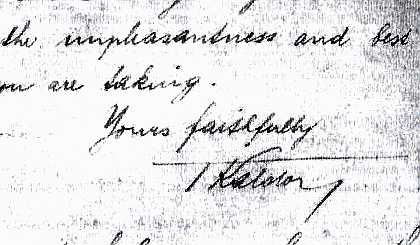 the unpleasantness and best
you are taking.
Yours faithfully
Kaldor